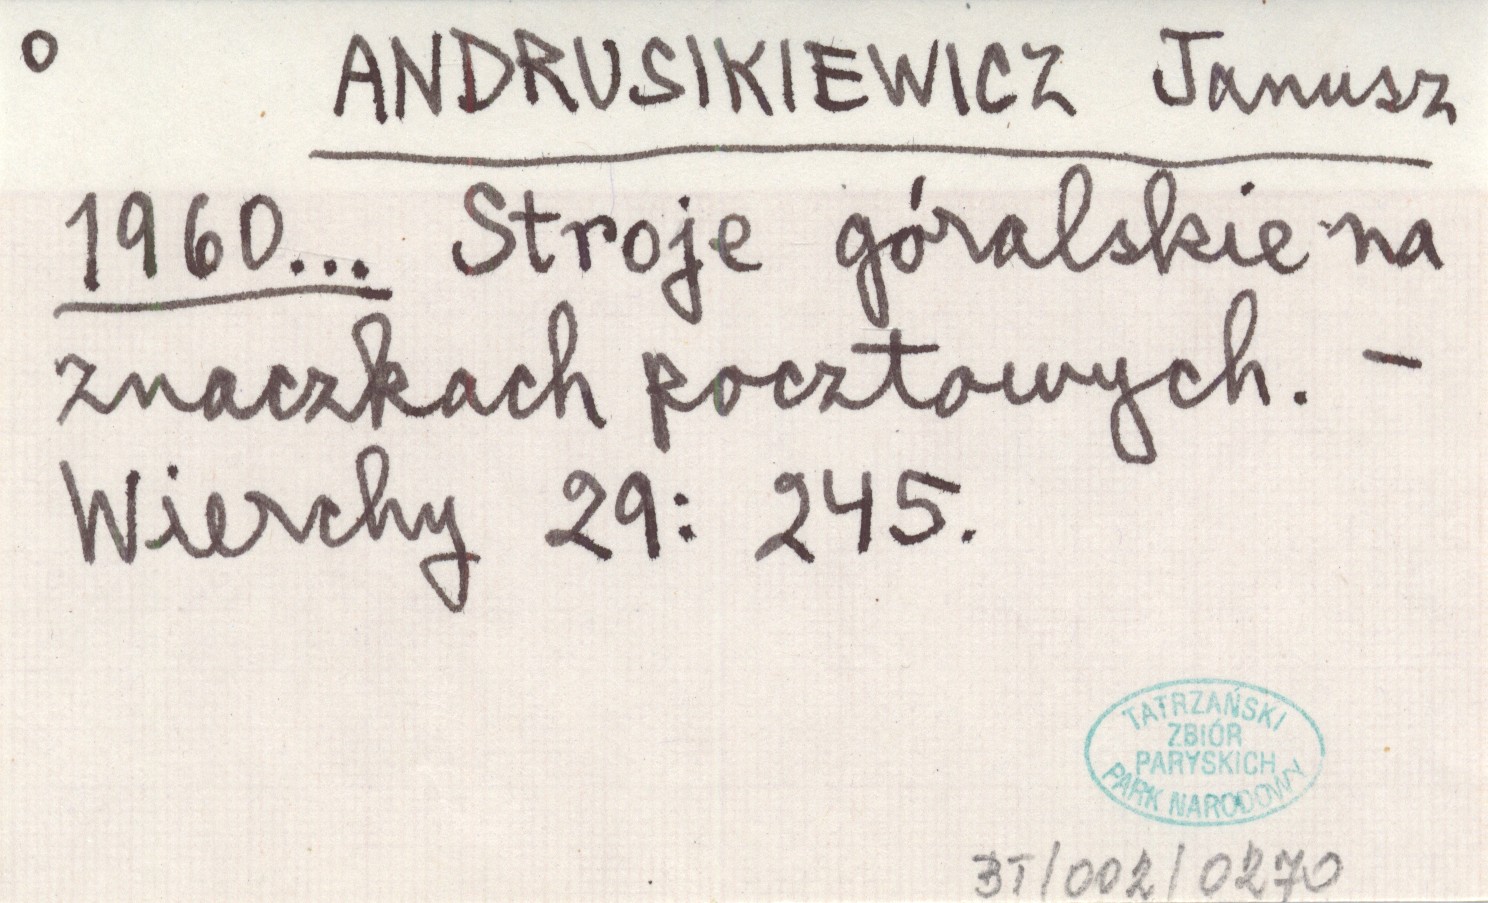 o ANDRUSIKIEWICZ Janusz
1960... Stroje góralskie na
znaczkach pocztowych. –
Wierchy 29: 245.
TATRZAŃSKI
ZBIÓR
PARYSKICH
PARK NARODOWY
BT/002/0270